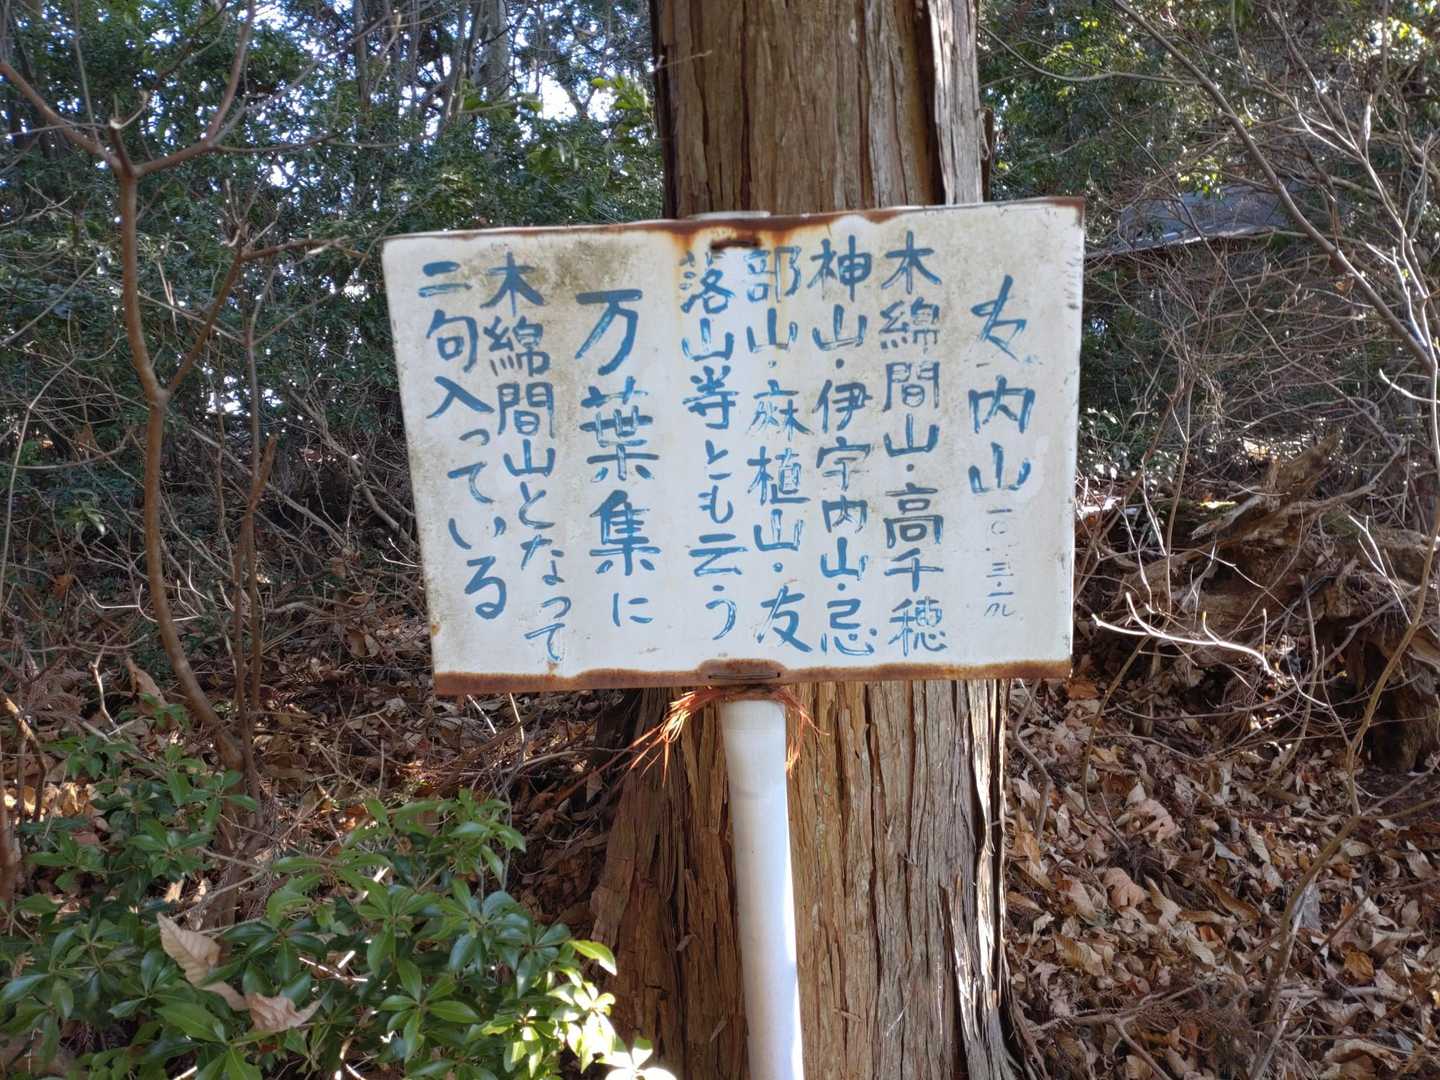 友内山
木綿間山・高千穂
神山・伊宇内山・忌
部山・麻植山・友
落山等とも云う
万葉集に
木綿間山となって
二句入っている